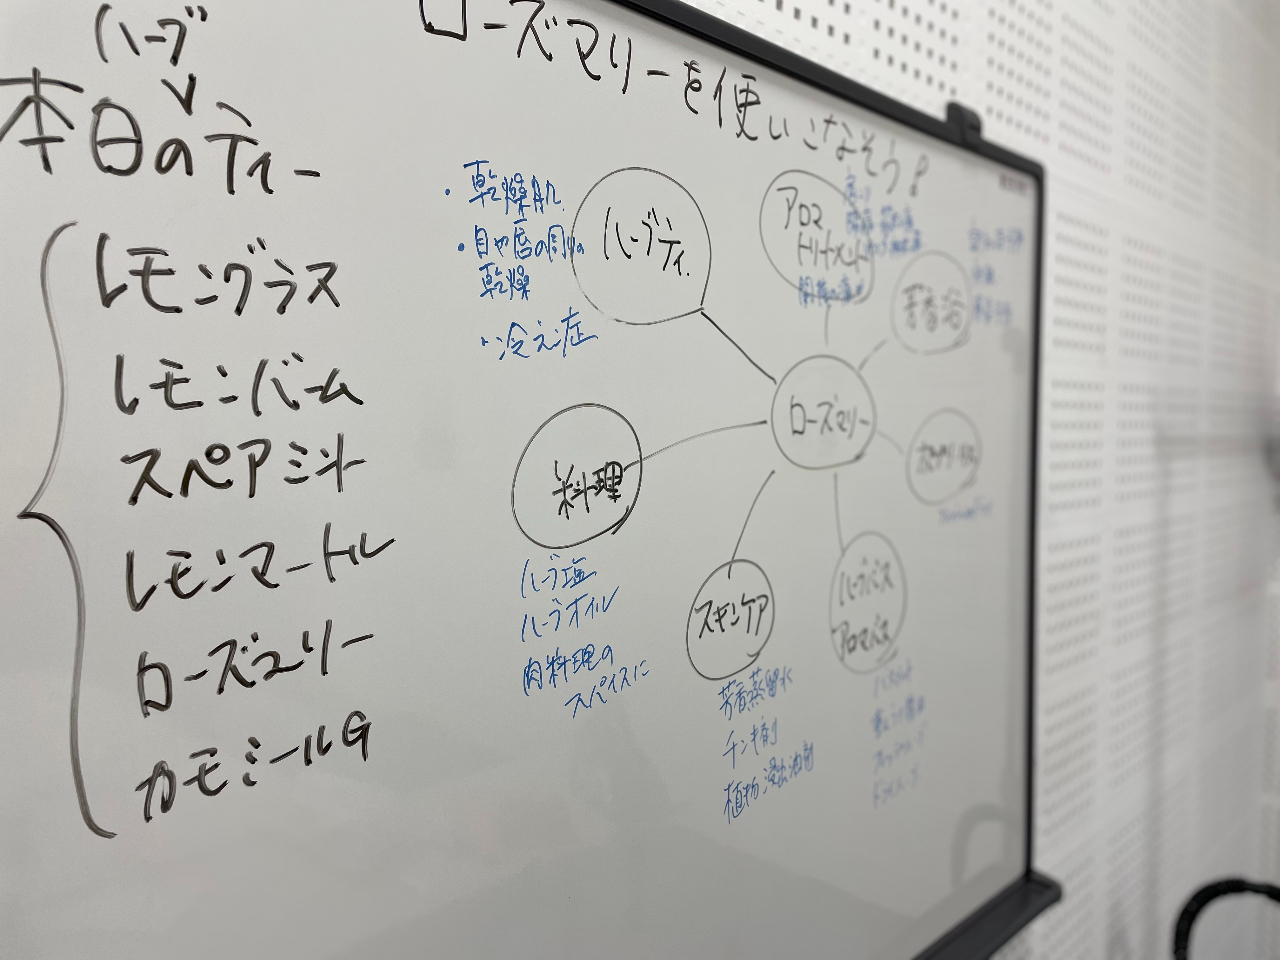 ハーブ
本日のティー
レモングラス
レモンバーム
スペアミント
レモンマートル
ローズマリー
カモミールG
ローズマリーを使いこなそう!
ハーブティ
・乾燥肌
・目や唇の周りの
乾燥
・冷え症
アロマ
トリートメント
芳香浴
ローズマリー
料理
ハーブ塩
ハーブオイル
肉料理の
スパイスに
スキンケア
芳香蒸留水
チンキ剤
植物浸出油剤
ハーブバス
アロマバス